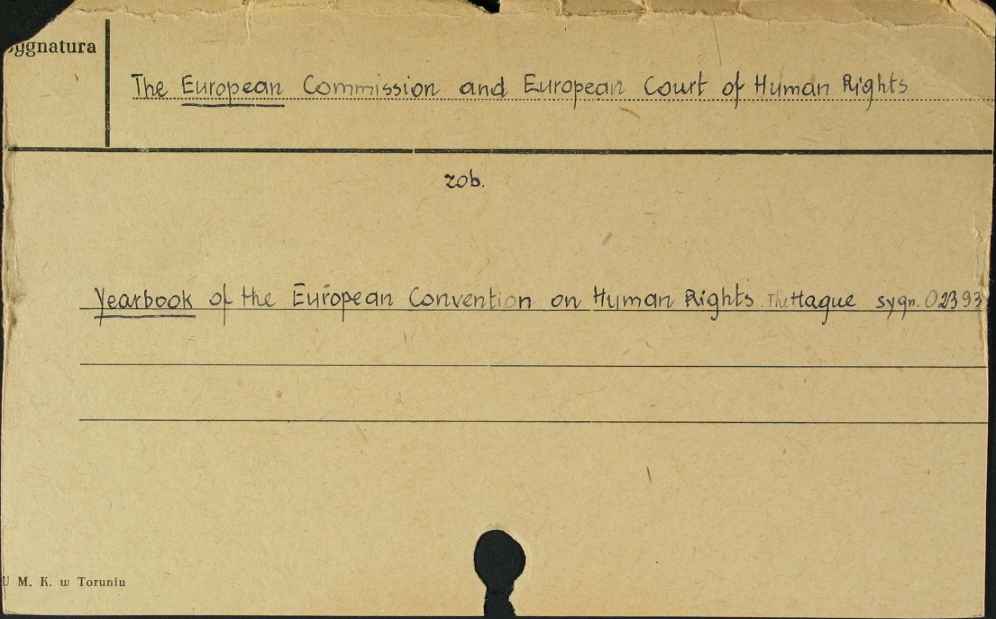 Sygnatura
The European Commission and European Court of Human Rights
zob.
Yearbook of the European Convention on Human Rights The Hague sygn. 02393
U M. K. w Toruniu